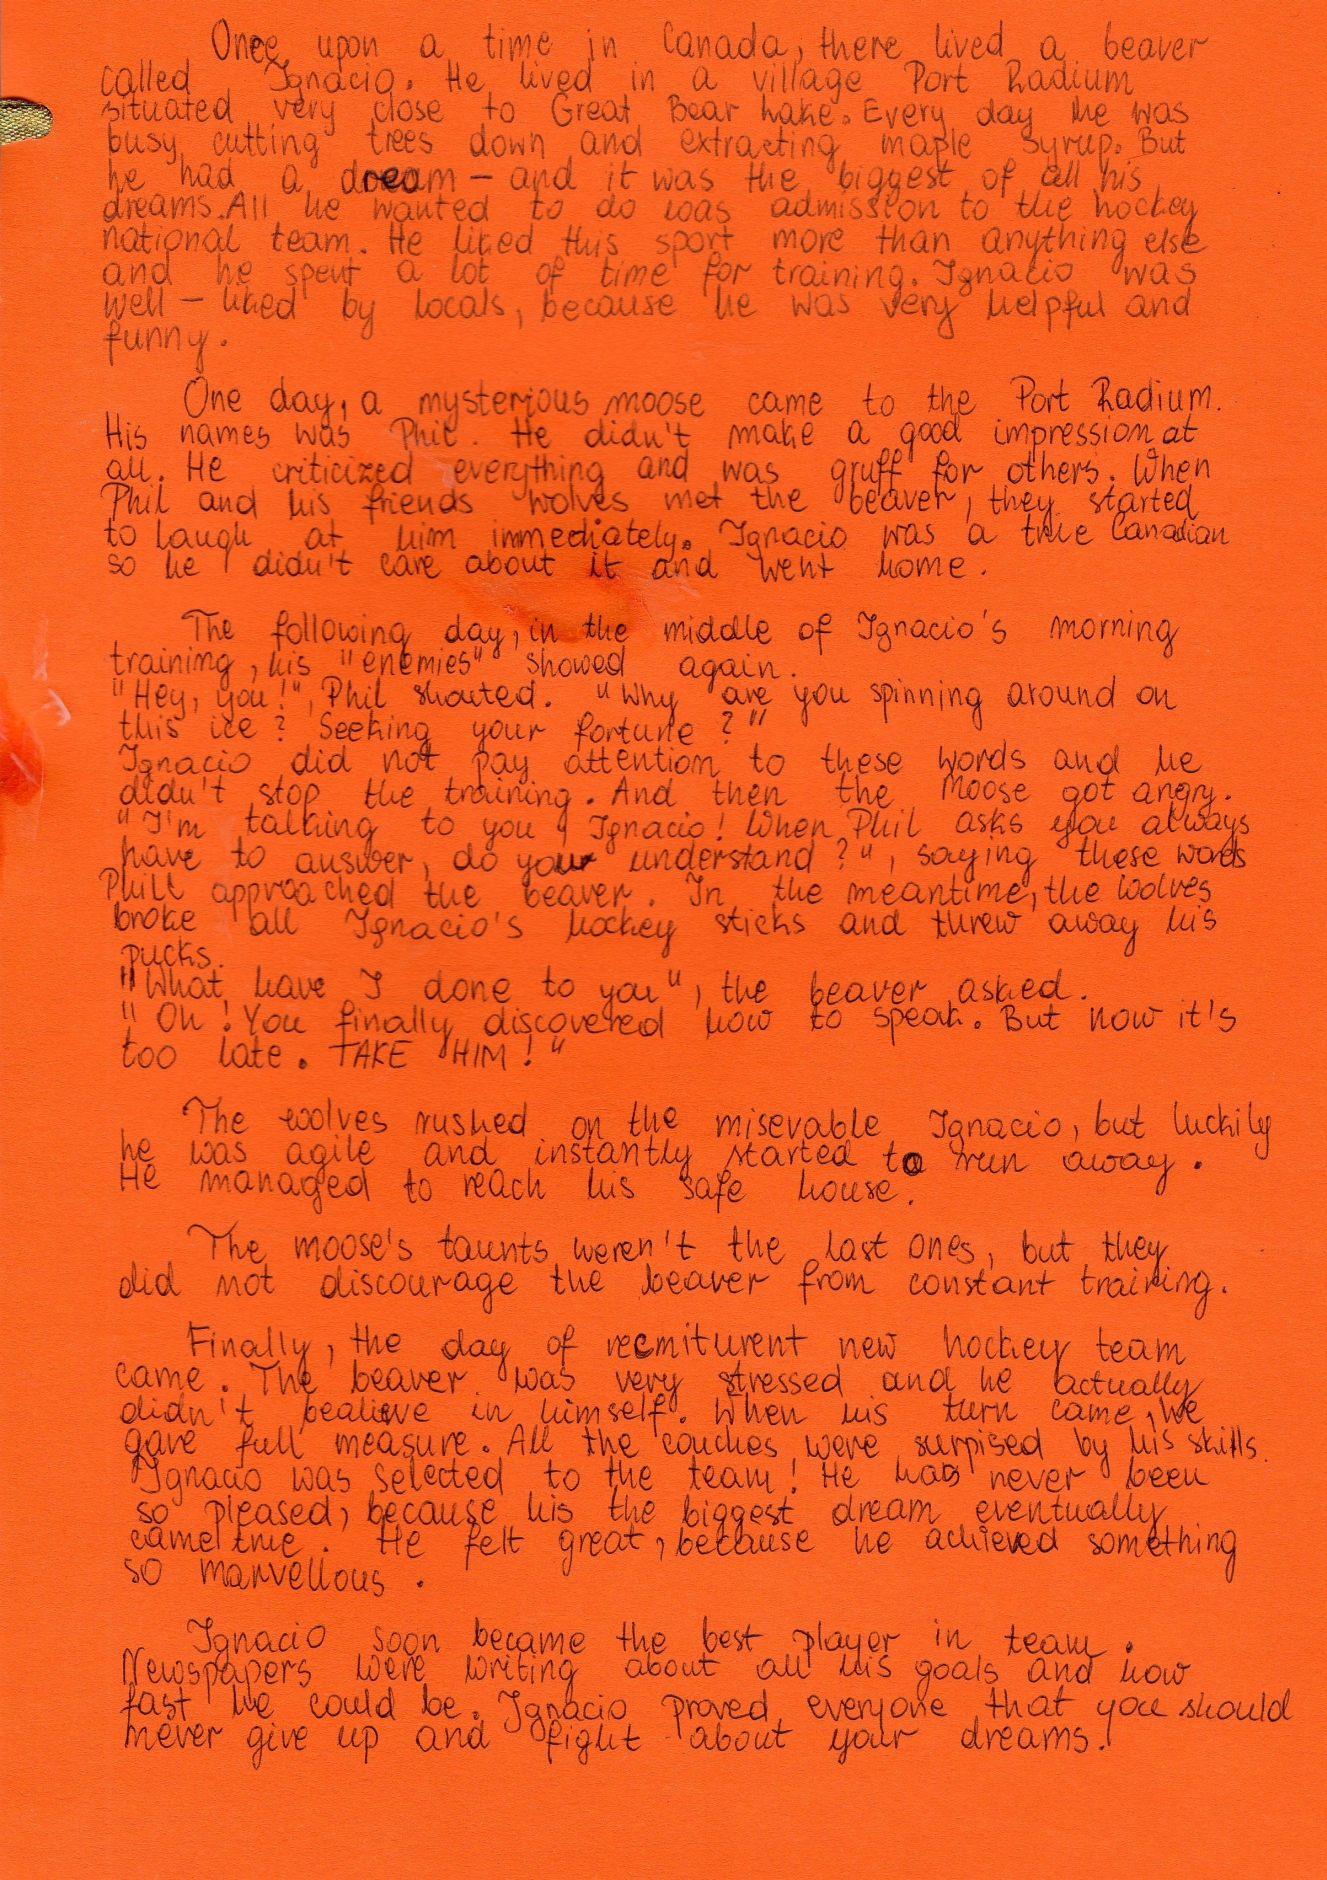 Once upon a time in Canada, there lived a beaver
called Ignacio. He lived in a village Port Radium
situated very close to Great Bear Lake. Every day he was
busy cutting trees down and extracting maple syrup. But
he had a dream - and it was the biggest of all his
dreams. All he wanted to do was admission to the hockey
national team. He liked this sport more than anything else
and he spent a lot of time for training. Ignacio was
well-liked by locals, because he was very helpful and
funny.
One day, a mysterious moose came to the Port Radium.
His names was Phil. He didn't make a good impression at
all. He criticized everything and was gruff for others. When
Phil and his friends wolves met the beaver, they started
to laugh at him immediately. Ignacio was a true Canadian
so he didn't care about it and went home.
The following day, in the middle of Ignacio's morning
training, his "enemies" showed again.
"Hey, you!", Phil shouted. "Why are you spinning around on
this ice? Seeking your fortune?"
Ignacio did not pay attention to these words and he
didn't stop the training. And then the Moose got angry.
"I'm talking to you, Ignacio! When Phil asks you always
have to answer, do you understand?", saying these words
Phill approached the beaver. In the meantime, the wolves
broke all Ignacio's hockey sticks and threw away his
pucks.
"What have I done to you", the beaver asked.
"Oh! You finally discovered how to speak. But now it's
too late. TAKE HIM!"
The wolves rushed on the miserable Ignacio, but luckily
he was agile and instantly started to run away.
He managed to reach his safe house.
The moose's taunts weren't the last ones, but they
did not discourage the beaver from constant training.
Finally, the day of recruiturent new hockey team
came. The beaver was very stressed and he actually
didn't bealieve in himself. When his turn came, he
gave full measure. All the couches were surpised by his skills.
Ignacio was selected to the team! He has never been
so pleased, because his the biggest dream eventually
came true. He felt great, because he achieved something
so marvellous.
Ignacio soon became the best player in team.
Newspapers were writing about all his goals and how
fast he could be. Ignacio proved everyone that you should
never give up and fight about your dreams.